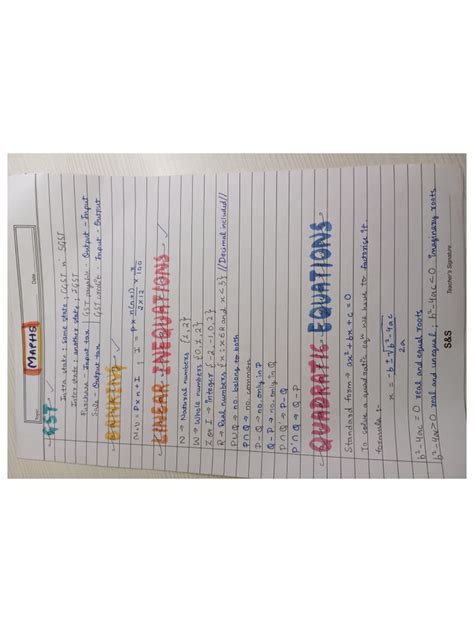 Date
MATHS
GST
Intra state : same state ; CGST n SGST
Inter state : another state ; IGST
Purchase - Input tax GST payable - Output - Input
Sale - Output tax GST credit - Input - Output
BANKING
M.V = P×n+I , I = P × n(n+1)/2×12 × r/100
LINEAR INEQUATIONS
N → Natural numbers {1,2}
W → Whole numbers {0,1,2}
I or Z → Integer {-2,-1,0,1,2}
R → Real numbers {x : x∈R and x<3} //Decimal included//
P∪Q → no. belong to both
P∩Q → no. common
P-Q → no. only in P
Q-P → no. only in Q
P∩Q' → P-Q
P'∩Q → Q-P
QUADRATIC EQUATIONS
Standard form → ax²+bx+c=0
To solve a quadratic eqⁿ we have to factorise it.
formula :- x = -b ± √b²-4ac / 2a
b²-4ac = 0 real and equal roots
b²-4ac>0 real and unequal ; b²-4ac<0 imaginary roots
S&S
Teacher's Signature